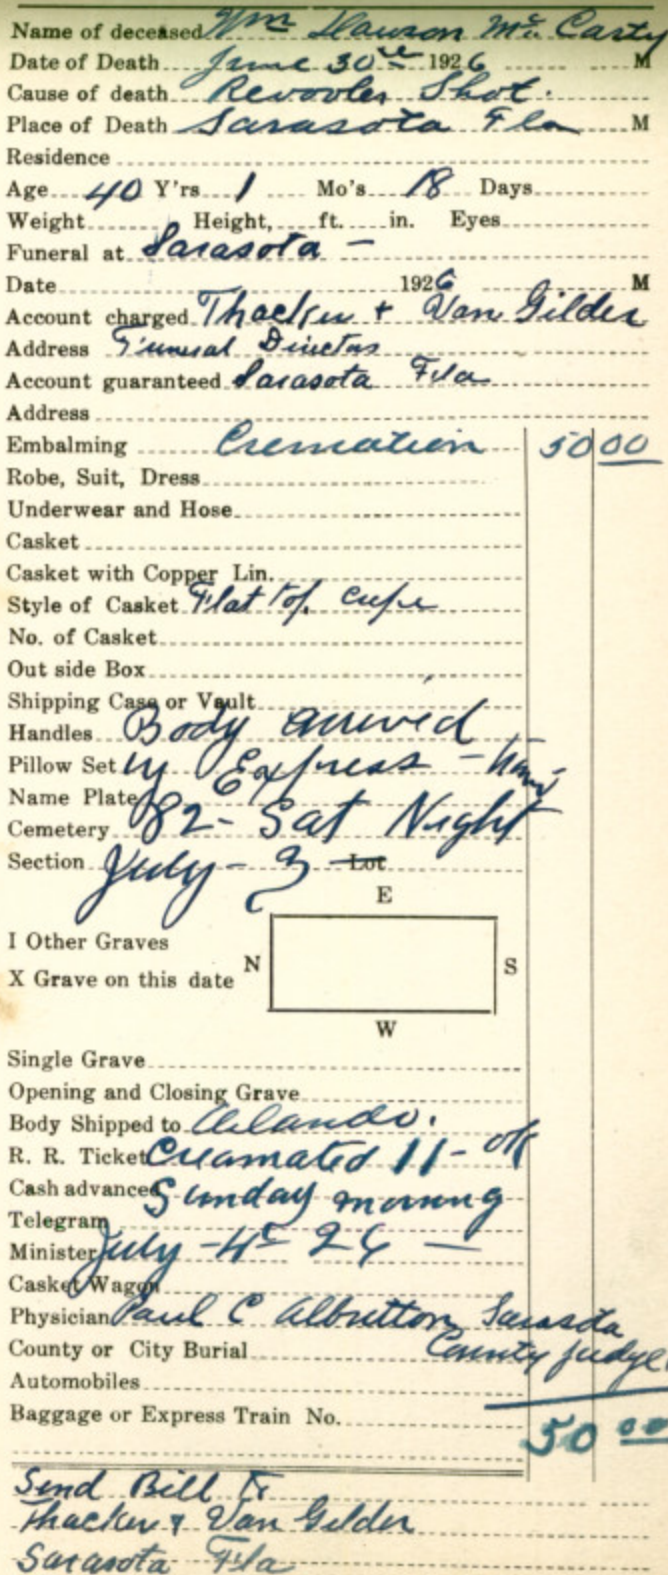 Name of deceased Wm Dawson McCarty
Date of Death June 30th 1926 M
Cause of death Revovler Shot.
Place of Death Sarasota Fla M
Residence
Age 40 Y'rs 1 Mo's 18 Days
Weight Height, ft. in. Eyes
Funeral at Sarasota –
Date 1926 M
Account charged Thacker + Van Gilder
Address Funeral Directors
Account guaranteed Sarasota Fla
Address
Embalming Cremation 50 00
Robe, Suit, Dress
Underwear and Hose
Casket
Casket with Copper Lin.
Style of Casket Flat Top
No. of Casket
Out side Box
Shipping Case or Vault
Handles Body arrived
Pillow Set by Express –
Name Plate
Cemetery 82 - Sat Night
Section July - 3 Lot
E
I Other Graves
N S
X Grave on this date
W
Single Grave
Opening and Closing Grave
Body Shipped to Orlando.
R. R. Ticket Creamated 11 -
Cash advanced Sunday morning
Telegram
Minister July - 4th 26 —
Casket Wagon
Physician Paul C Albritton Sarasota
County or City Burial County Judge
Automobiles
Baggage or Express Train No.
50 00
Send Bill To
Thacker & Van Gilder
Sarasota Fla